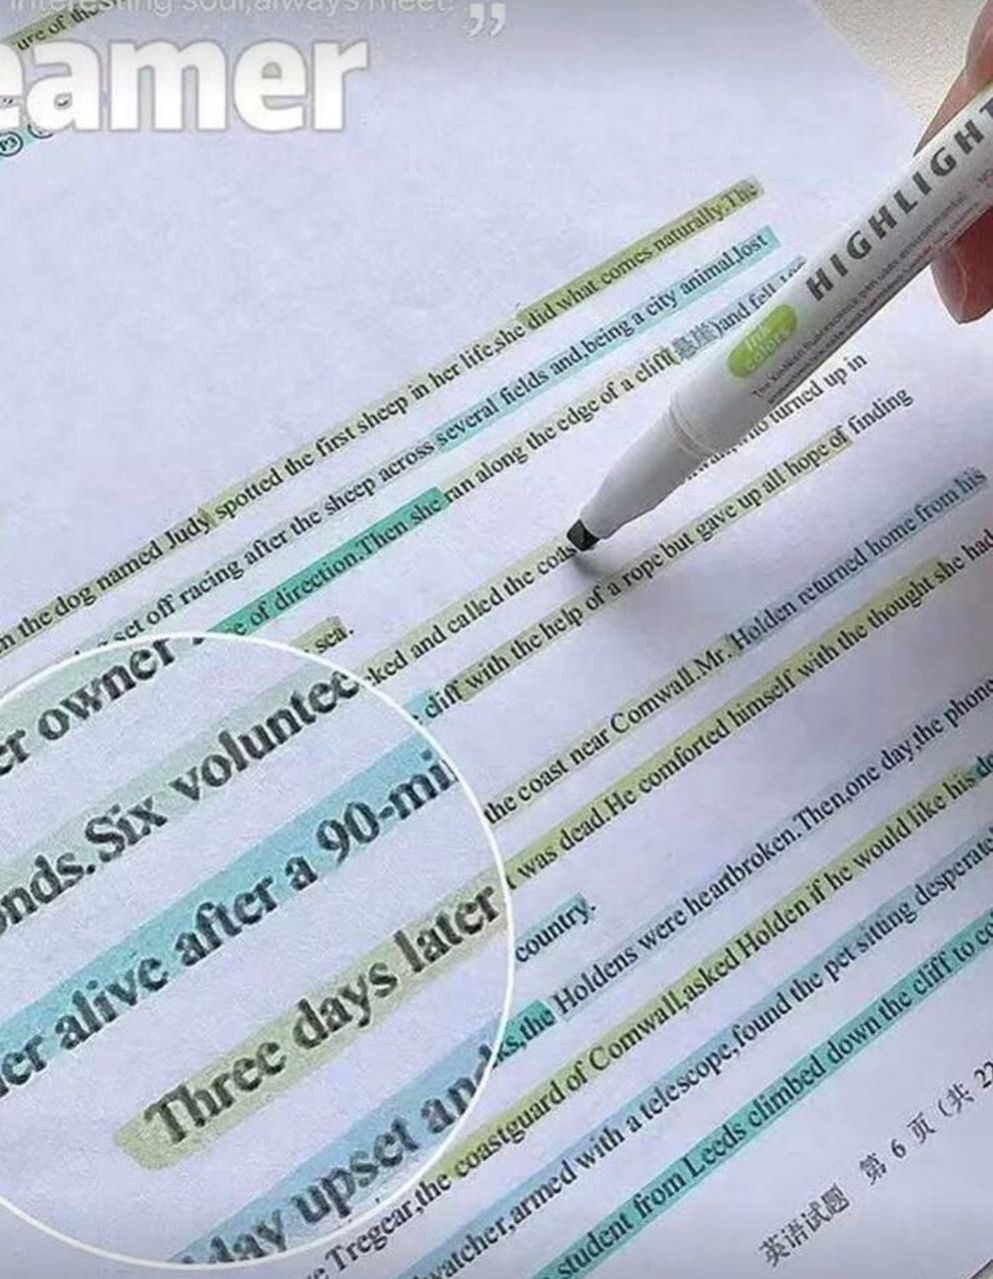 interesting soul,always meet.
”
eamer
ure of the
n the dog named Judy spotted the first sheep in her life,she did what comes naturally.The
set off racing after the sheep across several fields and,being a city animal,lost
e of direction.Then she ran along the edge of a cliff(悬崖)and fell
sea.
cked and called the coas
who turned up in
cliff with the help of a rope but gave up all hope of finding
the coast near Cornwall.Mr. Holden returned home from his
was dead.He comforted himself with the thought she had
country.
ks,the Holdens were heartbroken.Then,one day,the phone
Tregear,the coastguard of Cornwall,asked Holden if he would like his do
watcher,armed with a telescope,found the pet sitting desperate
student from Leeds climbed down the cliff to co
英语试题 第 6 页 (共 22
er owner
onds.Six voluntee
her alive after a 90-mi
Three days later
day upset and
HIGHLIGHT
ink
colors